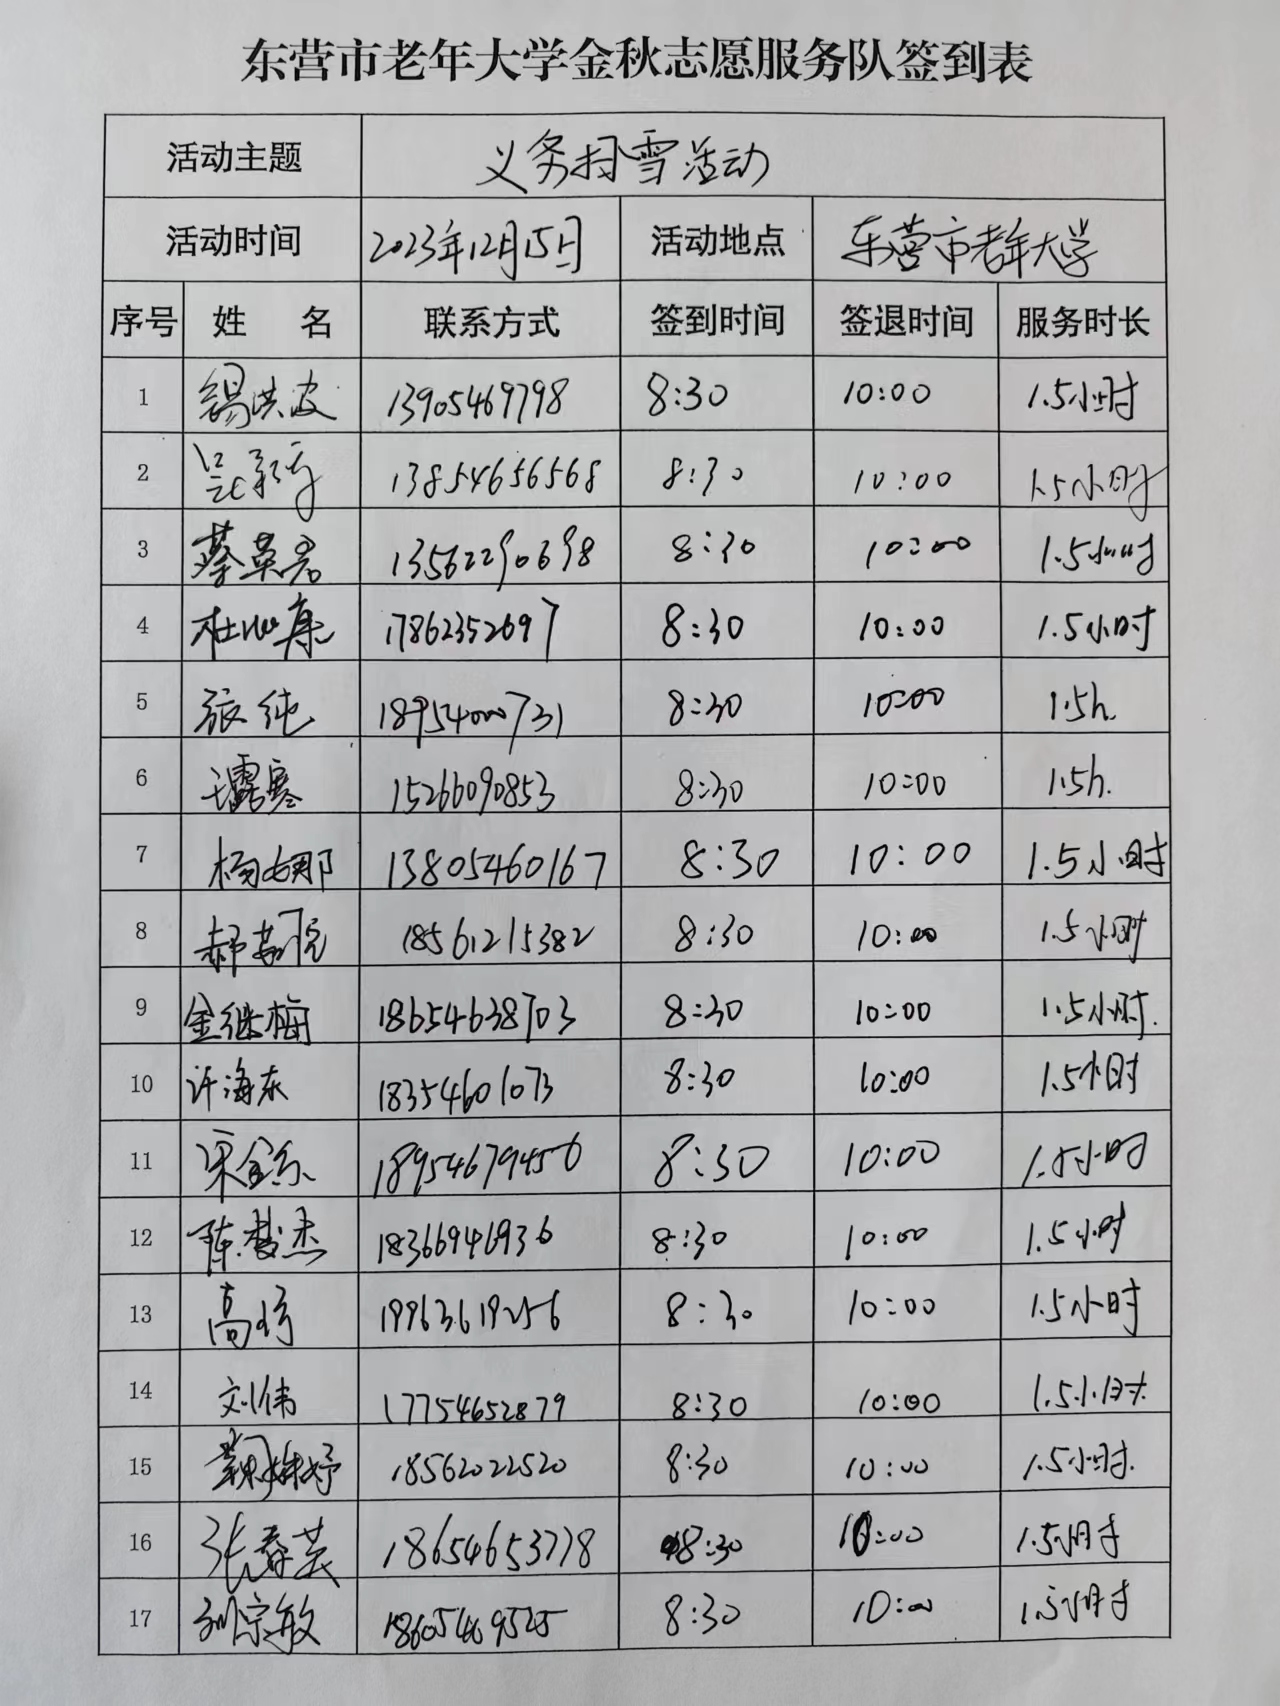 东营市老年大学金秋志愿服务队签到表
活动主题 义务扫雪活动
活动时间 2023年12月15日 活动地点 东营市老年大学
序号 姓 名 联系方式 签到时间 签退时间 服务时长
1 13905469798 8:30 10:00 1.5小时
2 13854656568 8:30 10:00 1.5小时
3 蔡英君 13562290698 8:30 10:00 1.5小时
4 17862352697 8:30 10:00 1.5小时
5 张纯 18954000731 8:30 10:00 1.5h.
6 王露寒 15266090853 8:30 10:00 1.5h.
7 杨娜 13805460167 8:30 10:00 1.5小时
8 18561215382 8:30 10:00 1.5小时
9 金继梅 18654638703 8:30 10:00 1.5小时.
10 许海东 18354601073 8:30 10:00 1.5小时
11 18954679456 8:30 10:00 1.5小时
12 陈梦杰 18366946936 8:30 10:00 1.5小时
13 19963619256 8:30 10:00 1.5小时
14 刘伟 17754652879 8:30 10:00 1.5小时
15 18562022520 8:30 10:00 1.5小时.
16 张春芸 18654653778 8:30 10:00 1.5小时
17 刘宗敏 18605469525 8:30 10:00 1.5小时